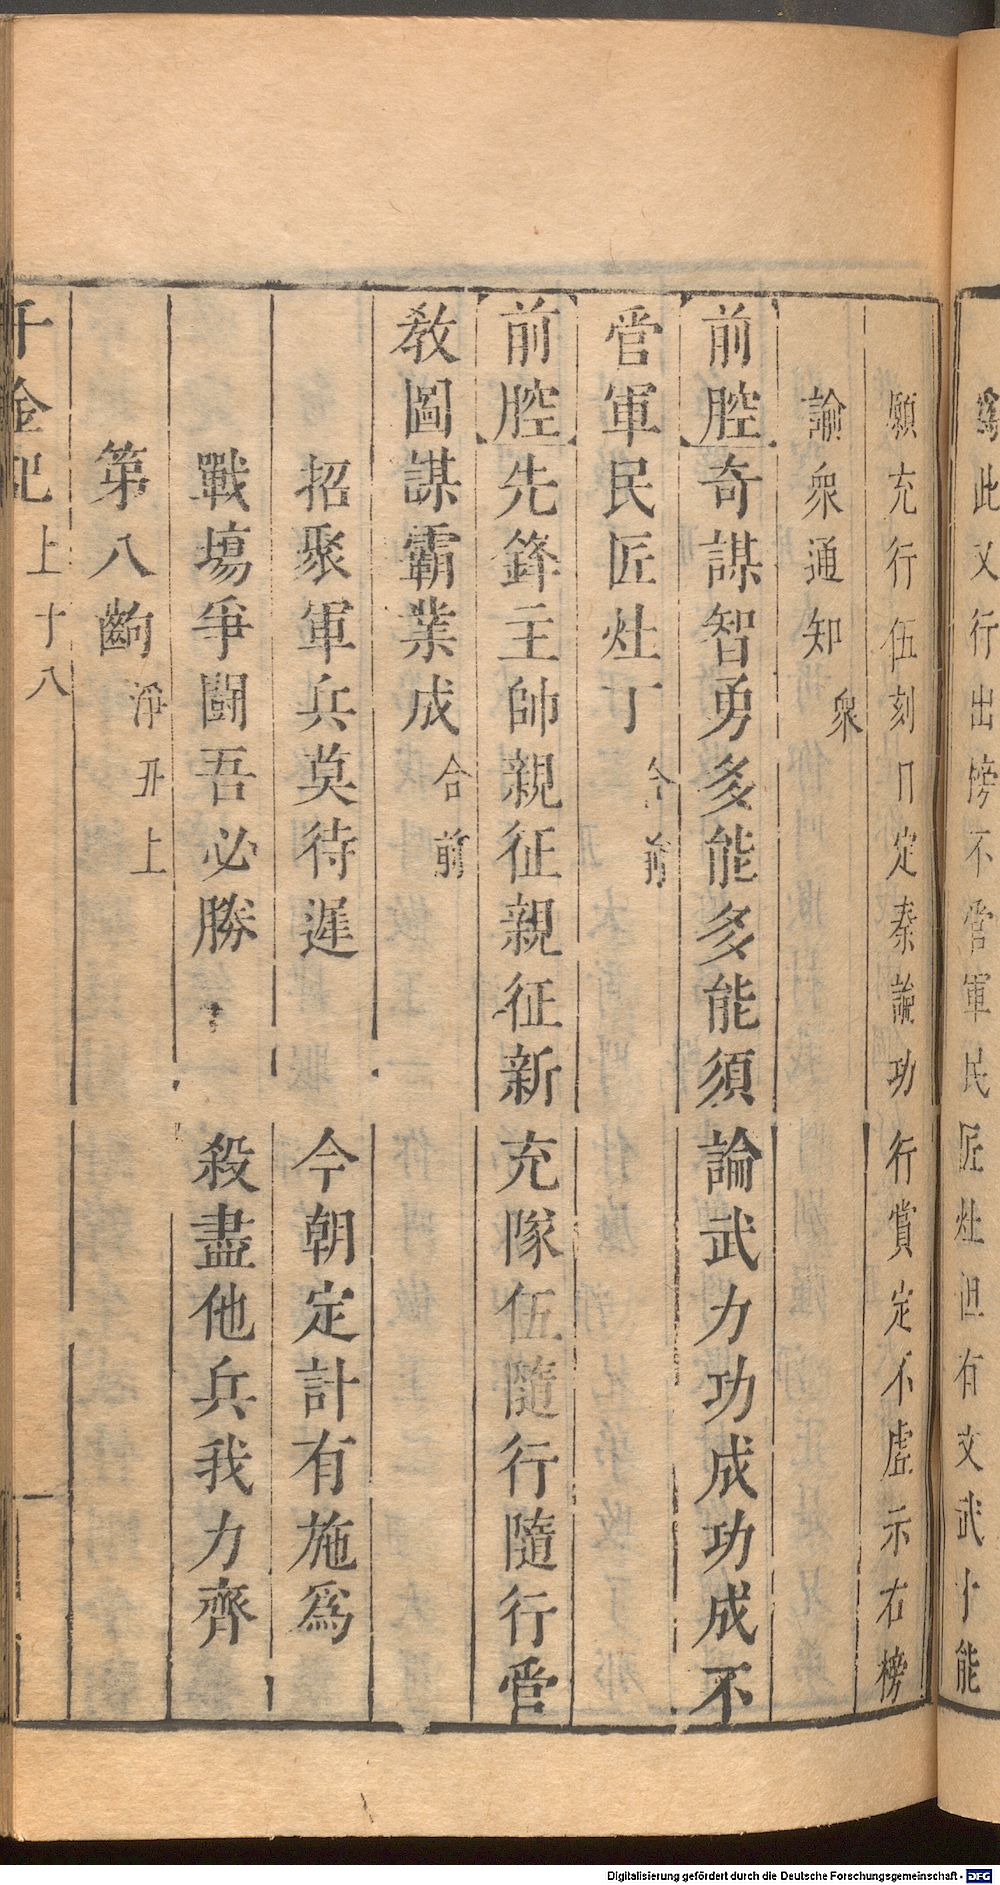 爲此又行出榜不官軍民匠灶但有文武十能
願充行伍刻日定秦論功行賞定不虛示右榜
諭衆通知 衆
前腔奇謀智勇多能多能須論武力功成功成不
官軍民匠灶丁 合前
前腔先鋒主帥親征親征新充隊伍隨行隨行官
敎圖謀霸業成 合前
招聚軍兵莫待遲 今朝定計有施爲
戰塲爭鬭吾必勝 殺盡他兵我力齊
第八齣 淨丑上
千金記 上 十八
Digitalisierung gefördert durch die Deutsche Forschungsgemeinschaft - DFG